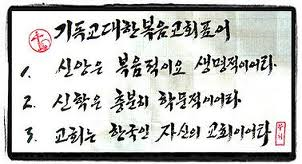 기독교대한복음교회표어
1. 신앙은 복음적이요 생명적이어라.
2. 신학은 충분히 학문적이어라.
3. 교회는 한국인 자신의 교회이어라